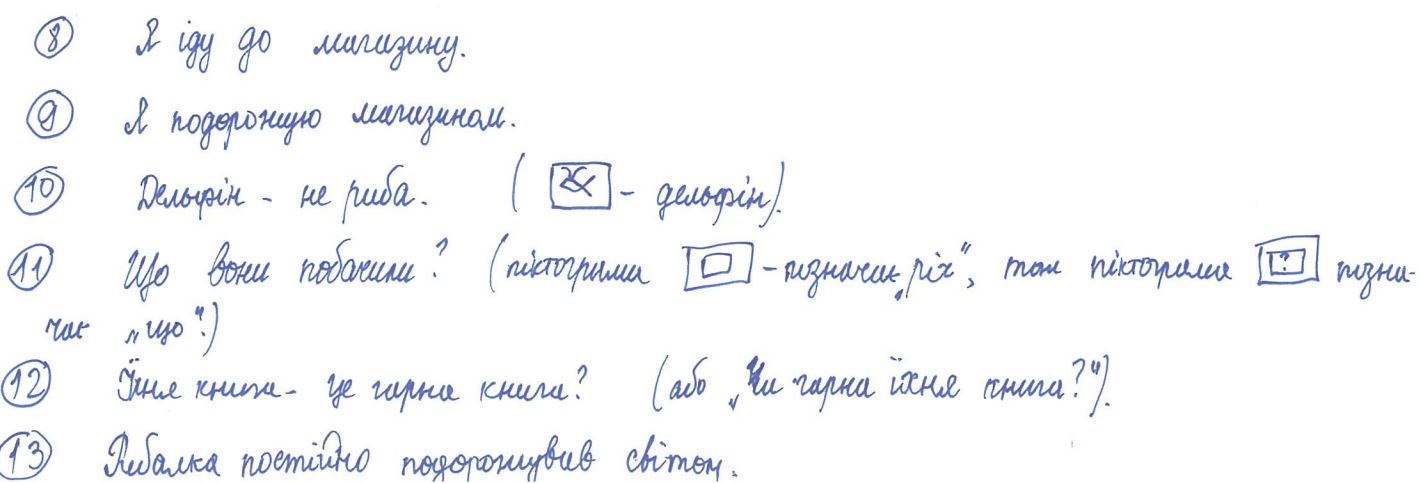 8 Я іду до магазину.
9 Я подорожую магазином.
10 Дельфін - не риба. ( - дельфін).
11 Що вони побачили? (піктограма - позначає „річ", том піктограма ? позна-
чає „що".)
12 Їхня книга - це гарна книга? (або „Чи гарна їхня книга?").
13 Рибалка постійно подорожував світом.